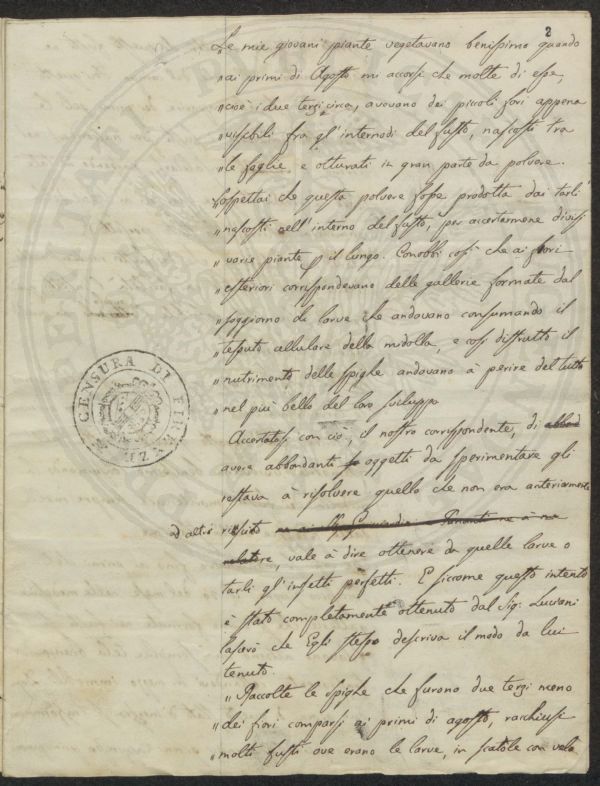 2
Le mie giovani piante vegetavano benissimo quando
„ ai primi di Agosto mi accorsi che molte di esse,
„ cioè i due terzi circa, avevano dei piccoli fori appena
„ visibili fra gl'internodi del fusto, nascosti tra
„ le foglie e otturati in gran parte da polvere.
Sospettai che questa polvere fosse prodotta dai tarli
„ nascosti nell'interno del fusto, per accertarmene divisi
„ varie piante p il lungo. Conobbi così che ai fori
„ esteriori corrispondevano delle gallerie formate dal
„ soggiorno di larve che andavano consumando il
„ tessuto cellulare della midolla, e così distrutto il
„ nutrimento delle spighe andavano a perire del tutto
„ nel più bello del loro sviluppo
Accertatosi con ciò, il nostro corrispondente, di abbond
avere abbondanti oggetti da sperimentare gli
restava à risolvere quello che non era anteriormente
ad altri riescito
relatore, vale à dire ottenere da quelle larve o
tarli gl'insetti perfetti. E siccome questo intento
è stato completamente ottenuto dal Sig: Luciani
lascerò che Egli stesso descriva il modo da lui
tenuto.
„ Raccolte le spighe che furono due terzi meno
„ dei fiori comparsi ai primi di agosto, racchiusi
„ molti fusti ove erano le larve, in scatole con velo
CENSURA DI FIRENZE